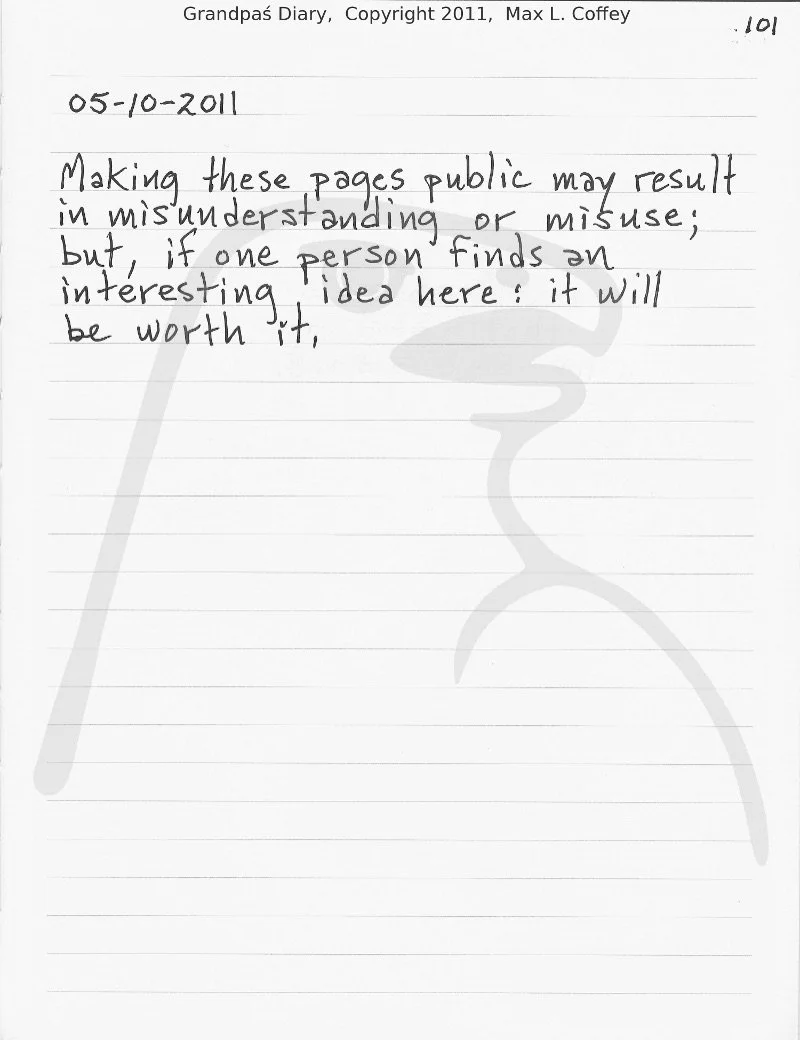 Grandpaś Diary, Copyright 2011, Max L. Coffey
101
05-10-2011
Making these pages public may result
in misunderstanding or misuse;
but, if one person finds an
interesting idea here: it will
be worth it.